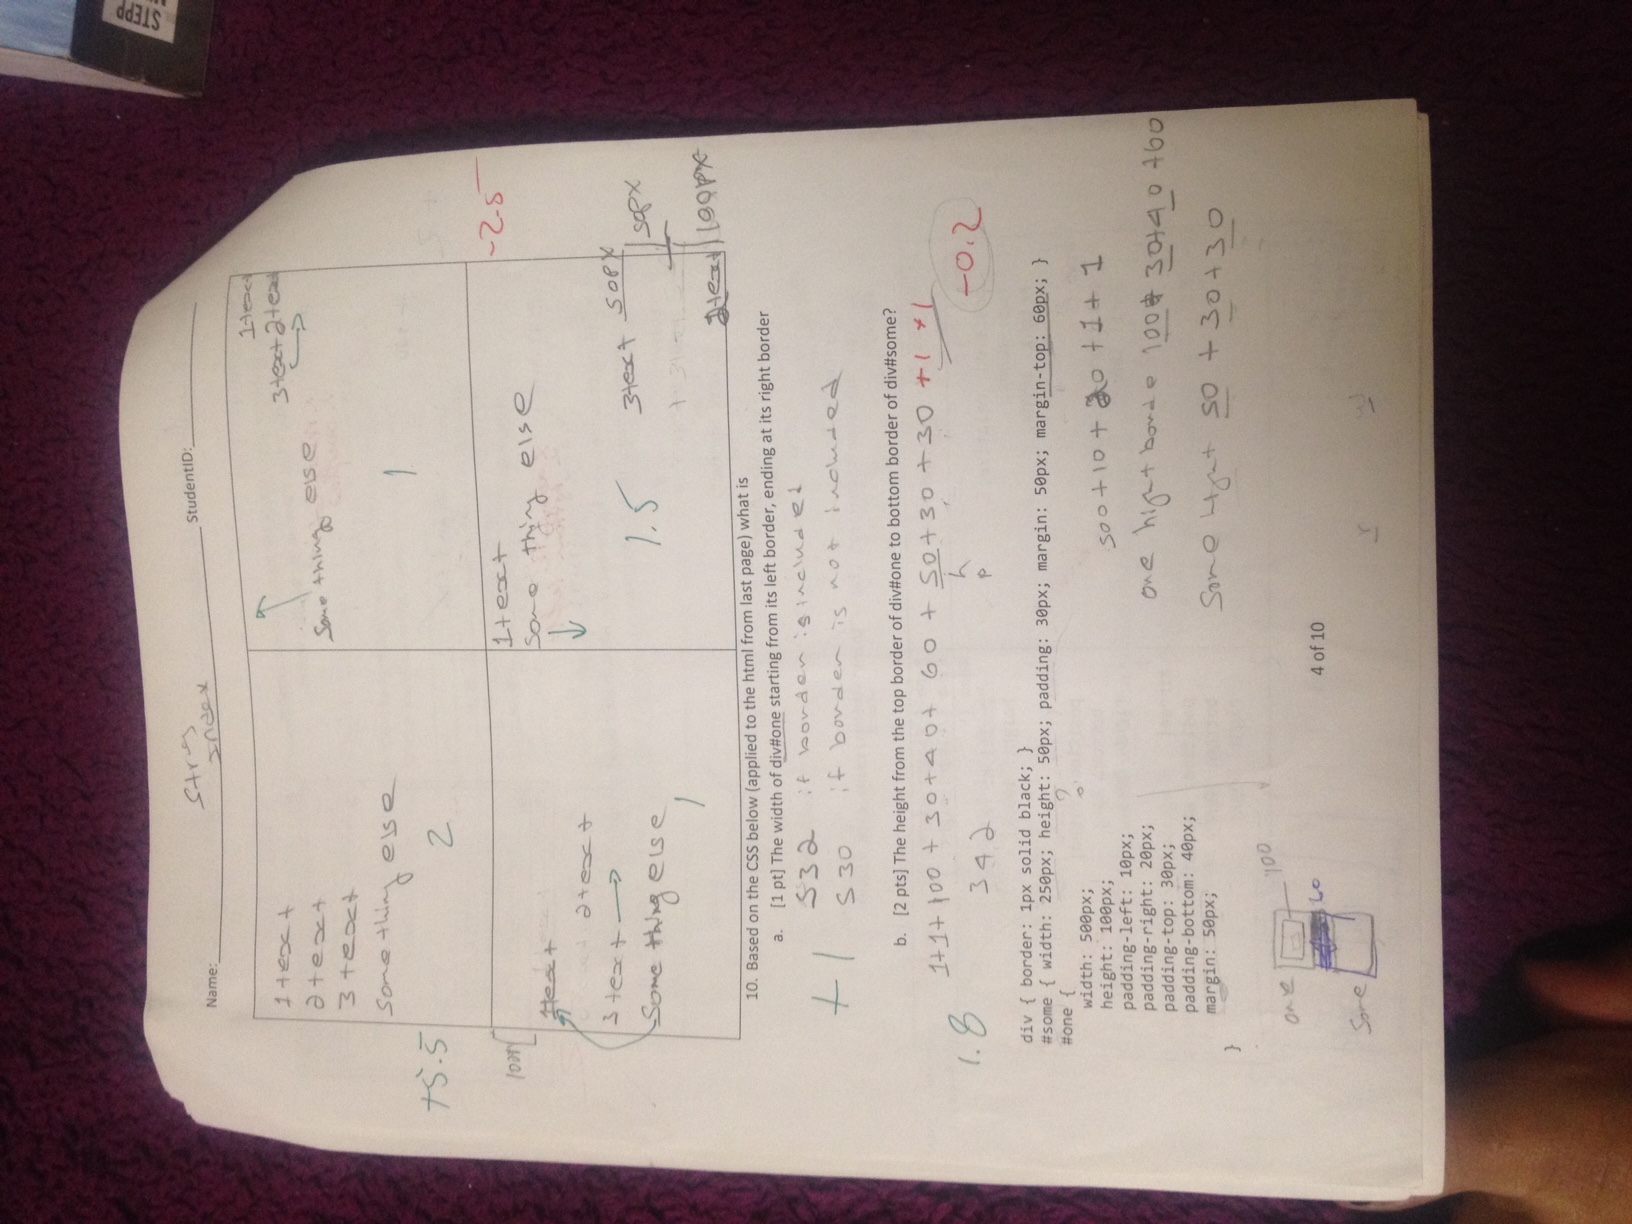 STEPP
Name:
Index
StudentID:
1text
2text
3text
Something else
2
+5.5
1text
3text 2text
Something else
1
-2.5
1text
2text
3text
Something else
1
1text
Something else
1.5
3text 50px
50px
2text 100px
10. Based on the CSS below (applied to the html from last page) what is
a. [1 pt] The width of div#one starting from its left border, ending at its right border
532 if border is included
530 if border is not included
+1
b. [2 pts] The height from the top border of div#one to bottom border of div#some?
1+1+100+30+40+ 60 + 50+30 +30 +1 +1
h
p
342
1.8
-0.2
div { border: 1px solid black; }
#some { width: 250px; height: 50px; padding: 30px; margin: 50px; margin-top: 60px; }
#one {
?
width: 500px;
height: 100px;
padding-left: 10px;
padding-right: 20px;
padding-top: 30px;
padding-bottom: 40px;
margin: 50px;
}
500+10+20+1+1
one hight borde 100+30+40+60
Some hight 50+30+30
one
100
60
Some
4 of 10
r
w